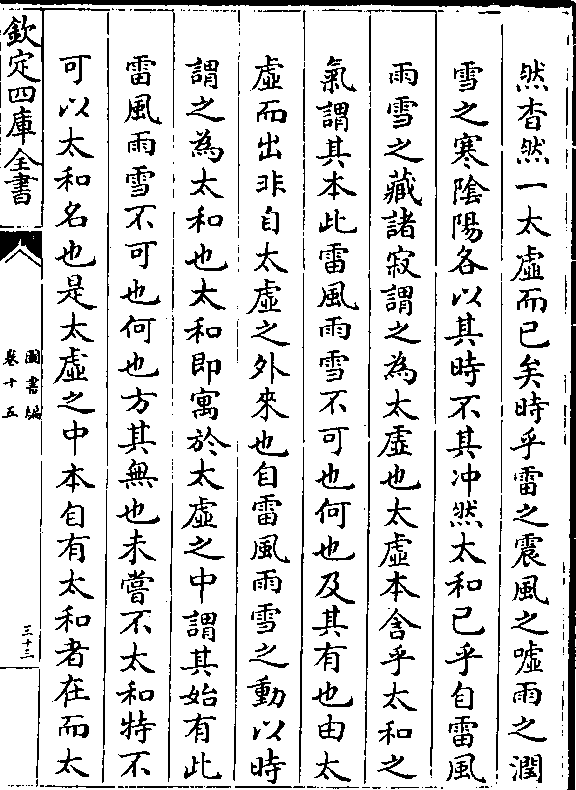 然杳然一太虛而已矣時乎雷之震風之噓雨之潤
雪之寒陰陽各以其時不其冲然太和已乎自雷風
雨雪之藏諸寂謂之為太虛也太虛本含乎太和之
氣謂其本此雷風雨雪不可也何也及其有也由太
虛而出非自太虛之外來也自雷風雨雪之動以時
謂之為太和也太和即寓於太虛之中謂其始有此
雷風雨雪不可也何也方其無也未嘗不太和特不
可以太和名也是太虛之中本自有太和者在而太
欽定四庫全書
圖書編
卷十五
三十三